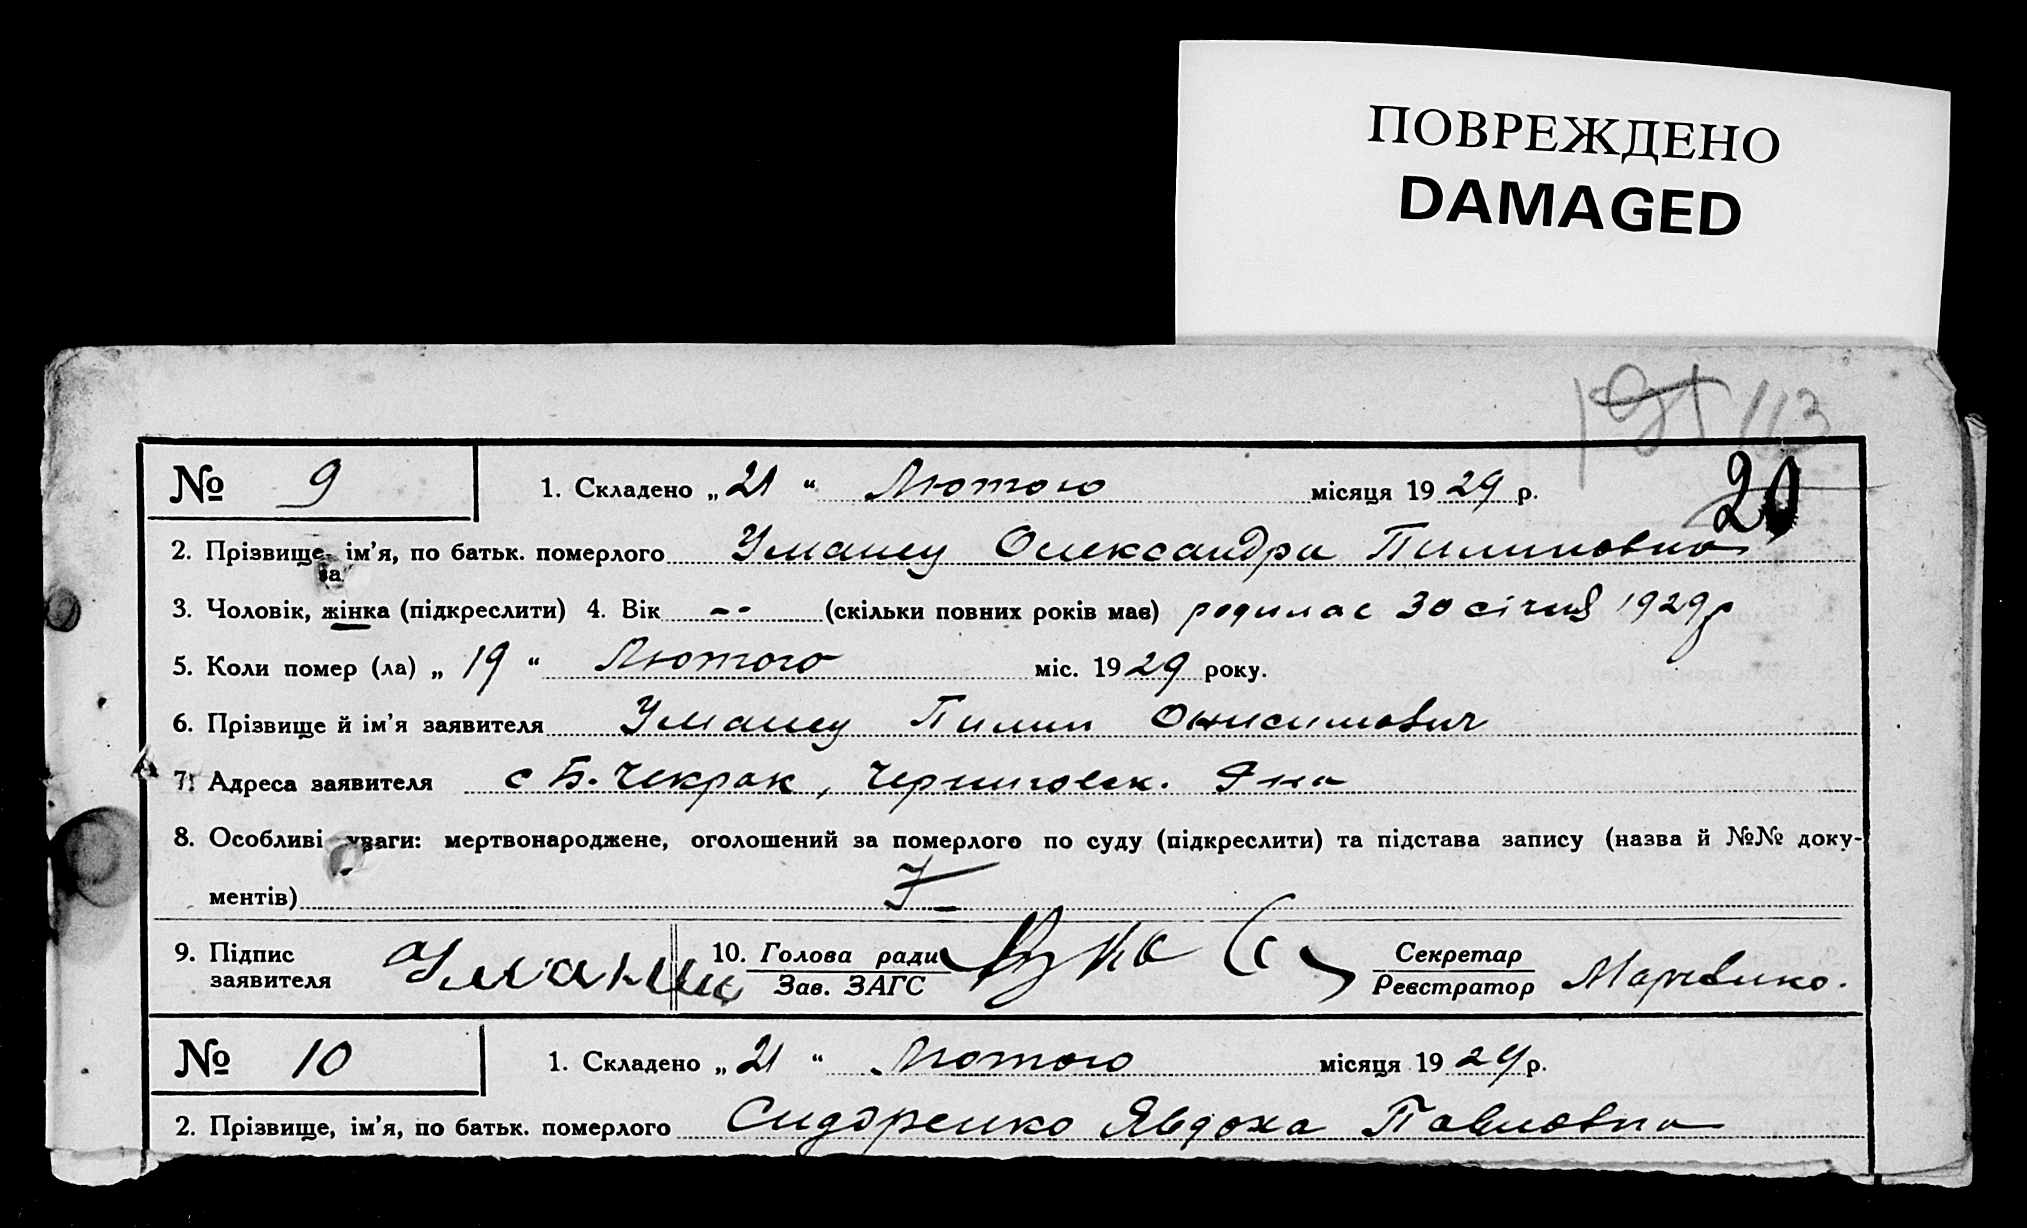 ПОВРЕЖДЕНО
DAMAGED
113
20
№ 9 1. Складено „ 21 “ Лютого місяця 19 29 р.
2. Прізвище, ім’я, по батьк. померлого Уманец Олександра Пилиповна
за
3. Чоловік, жінка (підкреслити) 4. Вік -- (скільки повних років має) родилас 30 січня 1929р
5. Коли помер (ла) „ 19 “ Лютого міс. 19 29 року.
6. Прізвище й ім’я заявителя Уманец Пилип Онисимович
7. Адреса заявителя с Б. Чекрак, Черниговск. Р-на
8. Особливі уваги: мертвонароджене, оголошений за померлого по суду (підкреслити) та підстава запису (назва й №№ доку-
ментів)
9. Підпис заявителя Уманец 10. Голова ради Зав. ЗАГС Секретар Реєстратор
№ 10 1. Складено „ 21 “ Лютого місяця 19 29 р.
2. Прізвище, ім’я, по батьк. померлого Сидоренко Явдоха Павловна